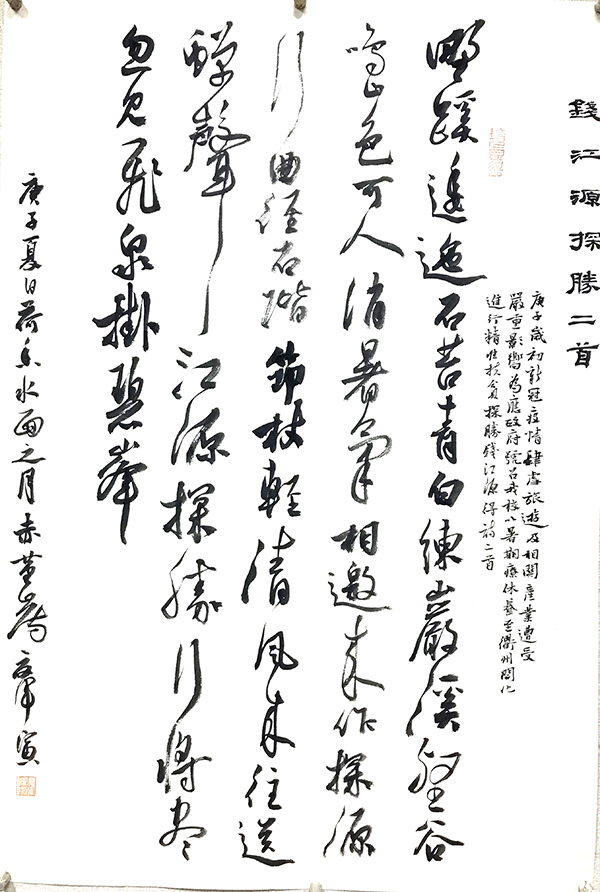 錢江源探勝二首
庚子歲初新冠疫情肆虐旅遊及相關產業遭受
嚴重影響為應政府號召我校以暑期療休養至衢州開化
進行精準扶貧探勝錢江源得詩二首
野蹊逶迤石苔青白練巖溪壑谷
鳴山色可人消暑氣相邀來作探源
行曲徑石階筇杖輕清風來往送
蟬聲江源探勝行將盡
忽見飛泉掛碧峯
庚子夏日荷香水面之月赤堇寅